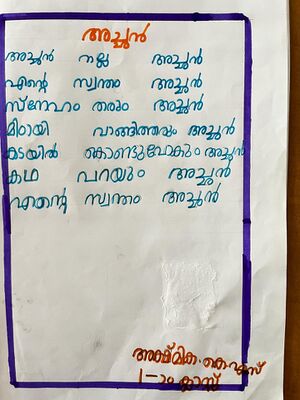 അച്ഛൻ
അച്ഛൻ നല്ല അച്ഛൻ
എന്റെ സ്വന്തം അച്ഛൻ
സ്നേഹം തരും അച്ഛൻ
മിഠായി വാങ്ങിത്തരും അച്ഛൻ
കടയിൽ കൊണ്ടുപോകും അച്ഛൻ
കഥ പറയും അച്ഛൻ
എന്റെ സ്വന്തം അച്ഛൻ
കെ എസ്
1-ാം ക്ലാസ്സ്